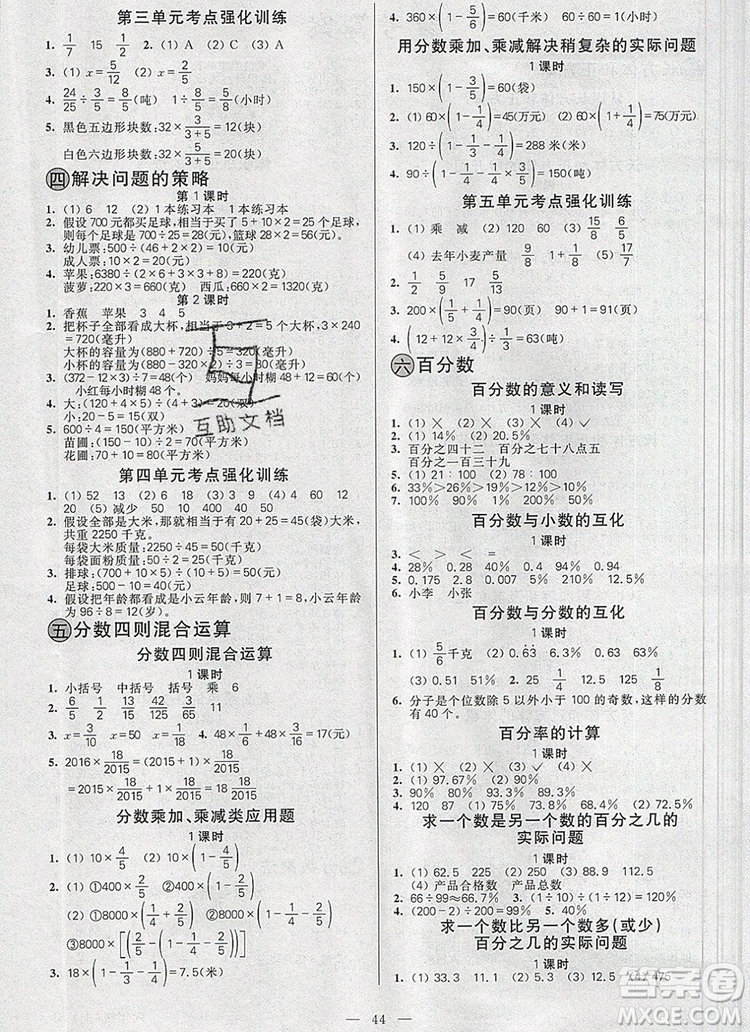 第三单元考点强化训练
1. 1/7 15 1/2 2. (1) A (2) C (3) A
3. (1) x=5/12 (2) x=2/3
4. 24/25÷3/5=8/5(吨) 1÷8/5=5/8(小时)
5. 黑色五边形块数:32×3/(3+5)=12(块)
白色六边形块数:32×5/(3+5)=20(块)
四 解决问题的策略
第1课时
1. (1) 6 12 (2) 1本练习本 1本练习本
2. 假设700元都买足球,相当于买了5+10×2=25个足球,
则每个足球是700÷25=28(元),篮球28×2=56(元)。
3. 幼儿票:(50-20)÷(2+4)=5(元)
成人票:10×2=20(元)
4. 苹果:6380÷(2+6×3+3×3)=220(克)
菠萝:220×3=660(克) 西瓜:660×2=1320(克)
第2课时
1. 香蕉 苹果 3 4 5
2. 把杯子全部看成大杯,相当于3+2=5个大杯,3×240
=720(毫升)
大杯的容量为(880+720)÷5=320(毫升)
小杯的容量为(880-320×2)÷3=80(毫升)
3. (372-12×3)÷7=48(个) 妈妈每小时糊48+12=60(个)
小红每小时糊48个。
4. 大:(100+4×5)÷(4+3)=20(双)
小:20-5=15(双)
5. 600÷4=150(平方米)
苗圃:(150-10)÷2=70(平方米)
花圃:70+10=80(平方米)
第四单元考点强化训练
1. (1) 52 13 (2) 6 18 (3) 9 (4) 48 60 10 12
20 (5) 44 50
2. 假设全部是大米,那就相当于有20+25=45(袋)大米,
共重2250千克。
每袋大米质量:2250÷45=50(千克)
每袋面粉质量:50÷2=25(千克)
3. 排球:(700+10×2)÷(10+2)=60(元)
足球:(500-10)÷10=50(元)
4. 假设把年龄都看成是小云年龄,则7+1=8,小云年龄是
96÷8=12(岁)。
五 分数四则混合运算
分数四则混合运算
1课时
1. 小括号 中括号 括号 乘 6
2. 6/5 5/12 1/40 6/5 13/2 40/125 11/115
3. x=3/10 x=50 x=4/15 4. 48×1/6+48×3/16=17(元)
5. 2016×18/2015=(2015+1)×18/2015
=2015×18/2015+1×18/2015=18 18/2015
分数乘加、乘减类应用题
1课时
1. (1) 10×4/5 (2) 10×(1-4/5)
2. (1) ①400×2/5 ②400×(1-2/5)
(2) ①8000×(1/4+2/5) ②8000×(2/5-1/4)
③8000×[(1-2/5)-1/4]
3. 18×(1-1/4-1/3)=7.5(米)
4. 360×(1-5/6)=60(千米) 5. 1/60
用分数乘加、乘减解决稍复杂的实际问题
1课时
1. 150×(1-3/5)=60(袋)
2. (1) 60×(1-1/4)=45(万元) (2) 60×(1+1/4)=75(万元)
3. 120÷1/2×(1+1/5)=288米
4. 90÷(1-1/4)=120(米)
第五单元考点强化训练
1. (1) 乘 减 (2) 120 60 (3) 15/8 6/5
(4) 去年小麦产量 9/8 1/8 8/9 1/9
2. 1/2 5/7 4 15/34
3. 200×(1/5+1/4)=90(页) 200×1/4+1/5=90(页)
4. (12+12×3/4)÷1/3=63(米)
六 百分数
百分数的意义和读写
1课时
1. (1) × (2) × (3) √ (4) × (5) ×
2. (1) 14% (2) 20.5%
3. 百分之四十二 百分之七十八点五
百分之一百三十九
5. (1) 21∶100 (2) 78∶100
6. 33%>31%>27%>20%>12%>11%
7. 100% 90% 20%
百分数与小数的互化
1课时
3. < > < =
4. 28% 0.28 40% 0.4 94% 0.94
5. 0.175 2.8 0.5 0.009
6. 小李 小张
百分数与分数的互化
1课时
1. (1) 5/6千克 (2) 0.63 63% 0.63 63%
(3) 0.51 2. 1/8 3. 25 1/4 12.5 1/8
6. 分子是个位数除5以外小于100的奇数,这样的分数
有40个。
百分率的计算
1课时
1. (1) × (2) × (3) √
2. (1) 97.67% (2) 90% (3) 92%
3. 90% 80% 93.3% 90% 92%
4. 120 87
求一个数是另一个数的百分之几的
实际问题
1课时
1. (1) 62.5 225 (2) 250 (3) 88.9 112.5
(4) 产品合格数 产品总数
2. 66÷99≈66.7% 3. 1÷(1÷1/8)=12.5%
4. (200-2)÷200=99% 5. 40%
求一个数比另一个数多(或少)
百分之几的实际问题
1课时
1. (1) 33.3 11.1 (2) 5 (3) 12.5 (4) 475
互助文档
答案圈
MXQE.COM
44